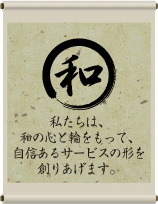 和
私たちは、
和の心と輪をもって、
自信あるサービスの形を
創りあげます。